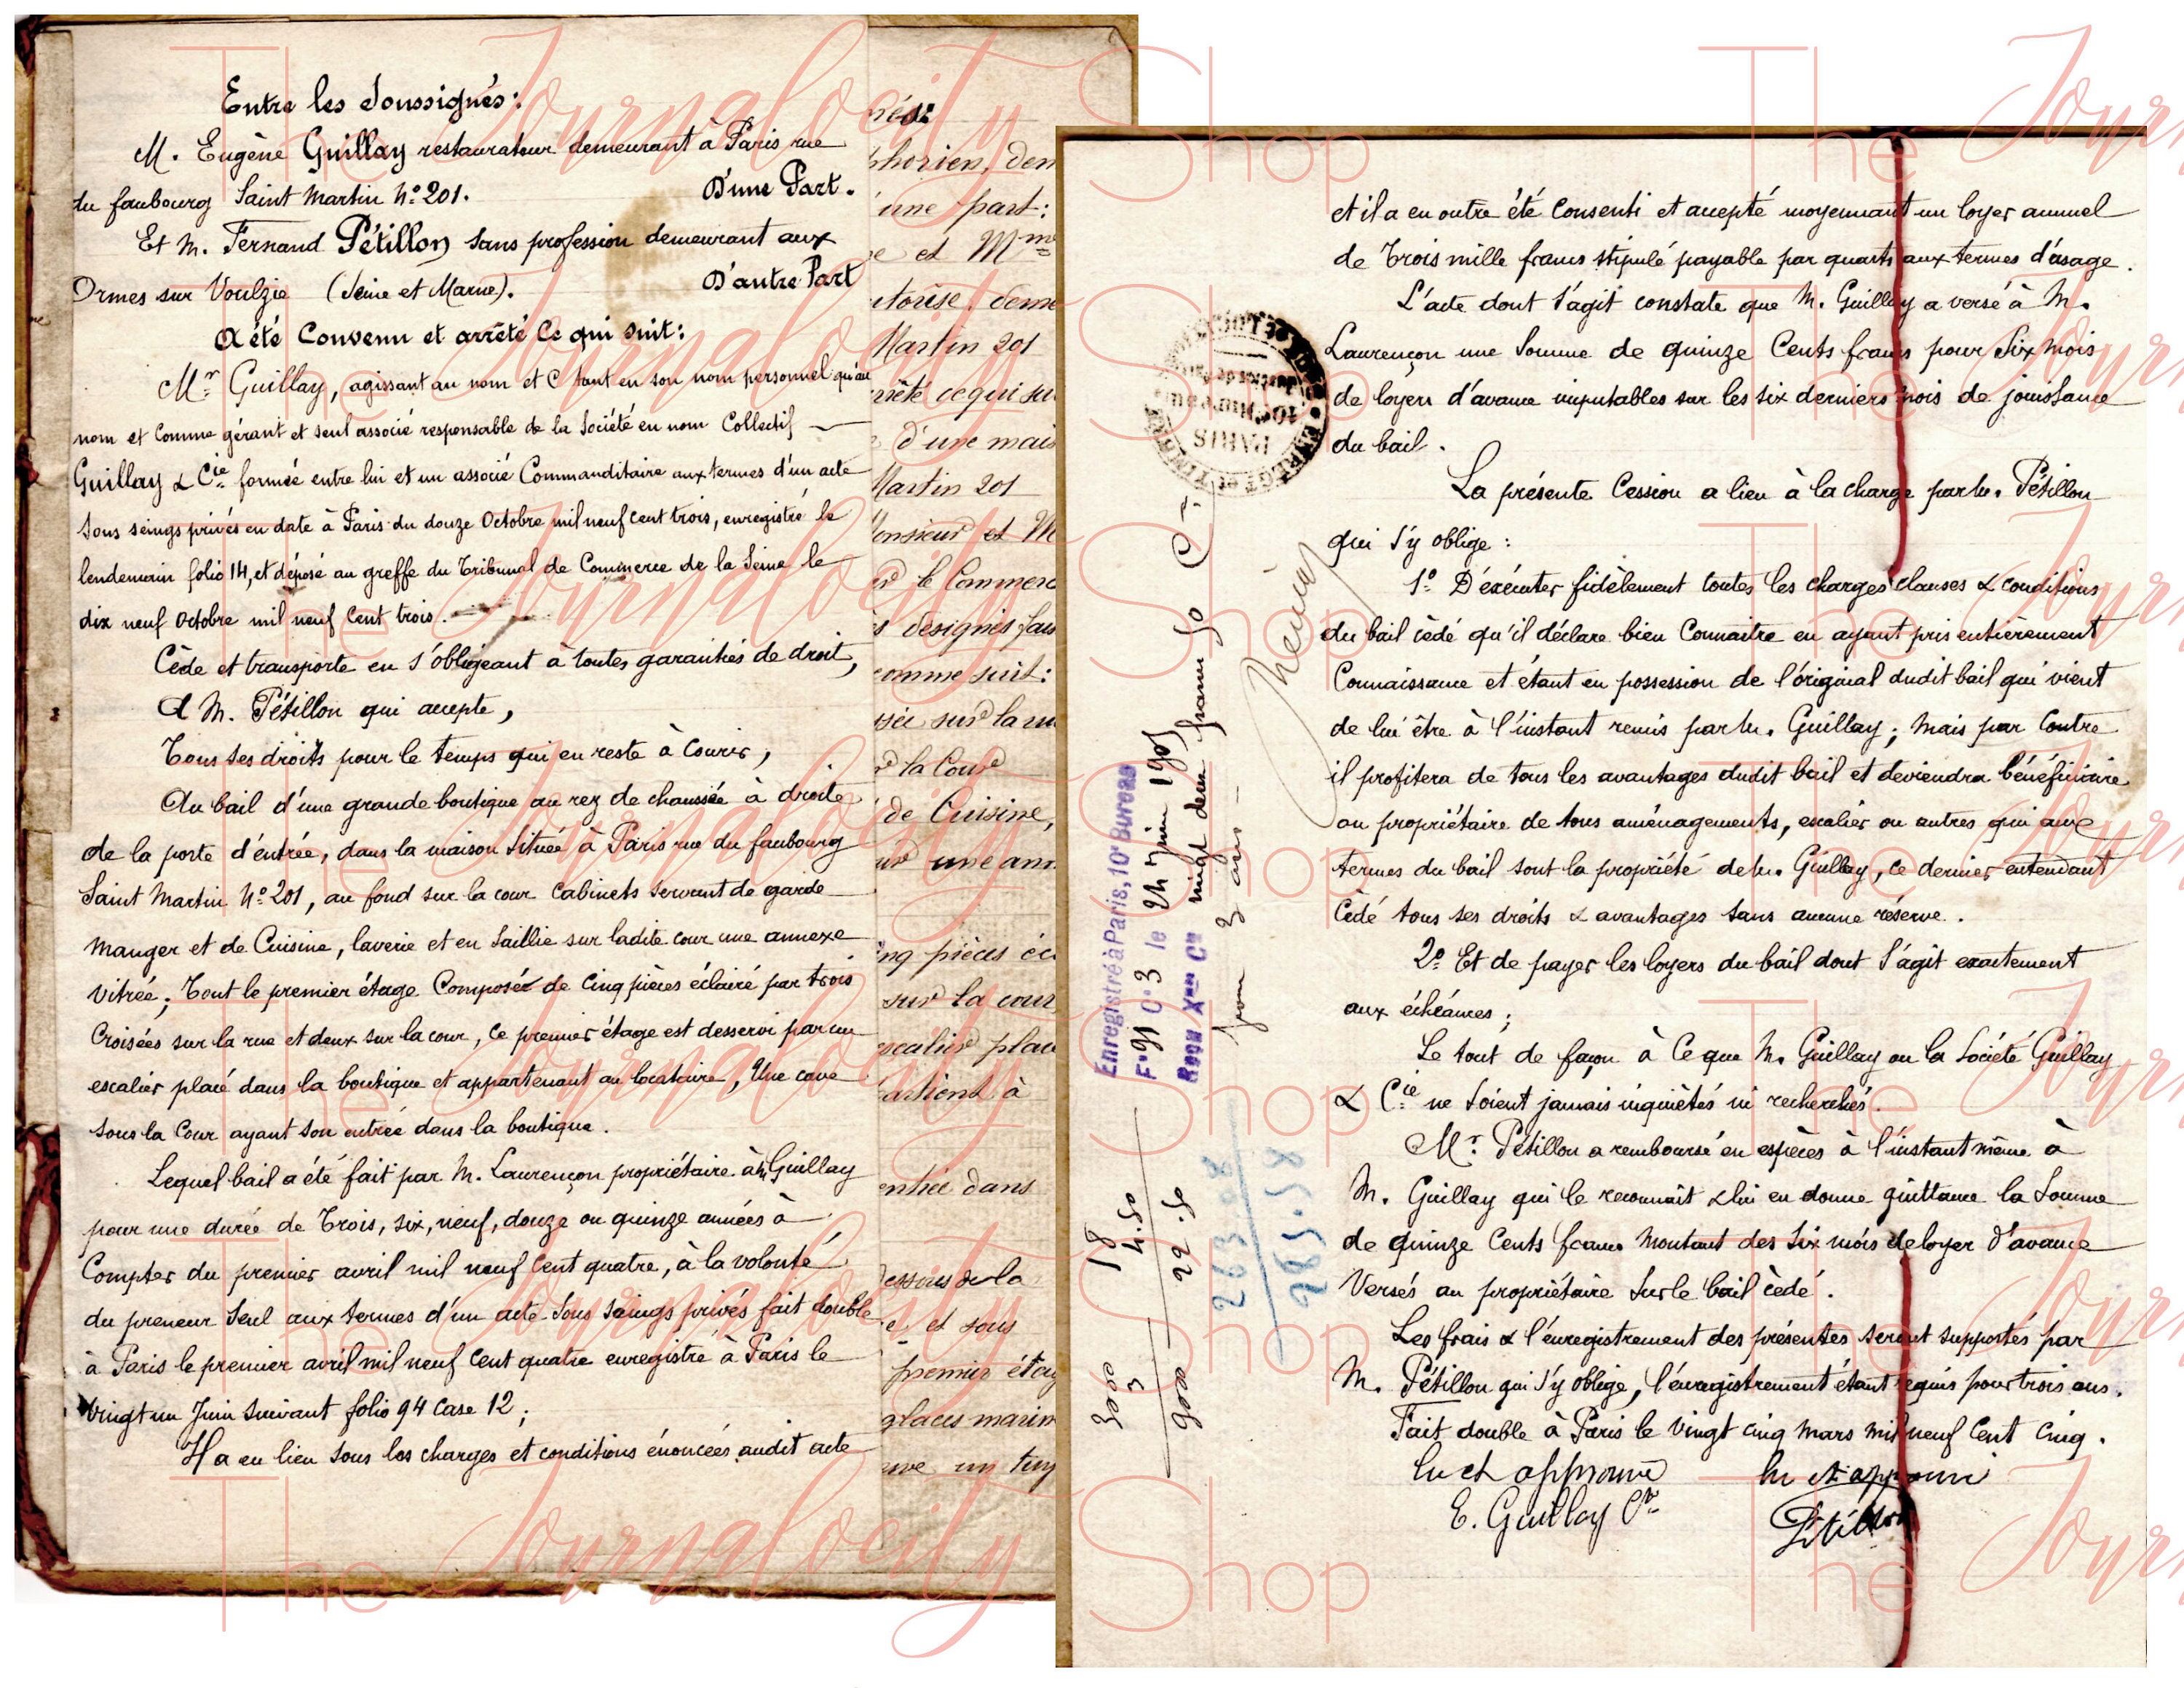 Entre les Soussignés:
M. Eugène Guillay restaurateur demeurant à Paris rue
du faubourg Saint Martin N° 201. D'une Part.
Et M. Fernand Pétillon sans profession demeurant aux
Ormes sur Voulzie (Seine et Marne). D'autre Part
A été Convenu et arrêté Ce qui suit:
Mr Guillay, agissant au nom et C tant en son nom personnel qu'au
nom et Comme gérant et seul associé responsable de la Société en nom Collectif
Guillay & Cie formée entre lui et un associé Commanditaire aux termes d'un acte
Sous seings privés en date à Paris du douze Octobre mil neuf cent trois, enregistré le
lendemain folio 14, et déposé au greffe du Tribunal de Commerce de la Seine le
dix neuf Octobre mil neuf Cent trois.
Cède et transporte en s'obligeant à toutes garanties de droit,
A M. Pétillon qui accepte,
Tous ses droits pour le temps qui en reste à Courir,
Au bail d'une grande boutique au rez de chaussée à droite
de la porte d'entrée, dans la maison Située à Paris rue du faubourg
Saint Martin N° 201, au fond sur la cour Cabinets servant de garde
manger et de Cuisine, laverie et en Saillie sur ladite cour une annexe
vitrée; Tout le premier étage Composé de Cinq pièces éclairé par trois
Croisées sur la rue et deux sur la cour, Ce premier étage est desservi par un
escalier placé dans la boutique et appartenant au locataire, Une cave
sous la Cour ayant son entrée dans la boutique.
Lequel bail a été fait par M. Laurençon propriétaire à M. Guillay
pour une durée de Trois, six, neuf, douze ou quinze années à
Compter du premier avril mil neuf Cent quatre, à la volonté
du preneur Seul aux termes d'un acte Sous Seings privés fait double
à Paris le premier avril mil neuf Cent quatre enregistré à Paris le
vingt un Juin Suivant folio 94 Case 12;
Il a eu lieu Sous les charges et conditions énoncées audit acte
phorien, dem
une part:
e et Mme
Martin 201
rrêté ce qui su
d'une mais
Martin 201
onsieur et M
le Commerc
s désignés
comme suit:
sur la
la Cour
de Cuisine,
une ann
nq pièces éc
sur la cour
escalier placé
artient à
entrée dans
dessous de la
e et sous
premier étag
glaces
un
et il a en outre été Consenti et accepté moyennant un loyer annuel
de Trois mille francs stipulé payable par quarts aux termes d'usage.
L'acte dont s'agit constate que M. Guillay a versé à M.
Laurençon une Somme de quinze Cents francs pour Six Mois
de loyers d'avance imputables sur les six derniers mois de jouissance
du bail.
La présente Cession a lieu à la charge par M. Pétillon
qui s'y oblige:
1° D'exécuter fidèlement toutes les charges clauses & conditions
du bail cédé qu'il déclare bien Connaître en ayant pris entièrement
Connaissance et étant en possession de l'original dudit bail qui vient
de lui être à l'instant remis par M. Guillay; Mais par Contre
il profitera de tous les avantages dudit bail et deviendra bénéficiaire
ou propriétaire de tous aménagements, escalier ou autres qui aux
termes du bail sont la propriété de M. Guillay, ce dernier entendant
Cédé tous ses droits & avantages sans aucune réserve.
2° Et de payer les loyers du bail dont s'agit exactement
aux échéances;
Le tout de façon à Ce que M. Guillay ou la Société Guillay
& Cie ne Soient jamais inquiétés ni recherchés.
Mr Pétillon a remboursé en espèces à l'instant même à
M. Guillay qui le reconnaît & lui en donne quittance la Somme
de quinze Cents francs Montant des Six mois de loyer d'avance
Versés au propriétaire Sur le bail cédé.
Les frais & l'enregistrement des présentes seront supportés par
M. Pétillon qui s'y oblige, l'enregistrement étant requis pour trois ans.
Fait double à Paris le vingt cinq mars mil neuf Cent Cinq.
lu et approuvé lu et approuvé
E. Guillay Cie Pétillon
PARIS
Enregistré à Paris, 10e Bureau
F° 91 C° 3 le 24 Juin 1905
Reçu vingt deux francs 50 Ct.
pour 3 ans
3000 18
3 4.50
9000 22.50
263.08
285.58
The Journalocity Shop